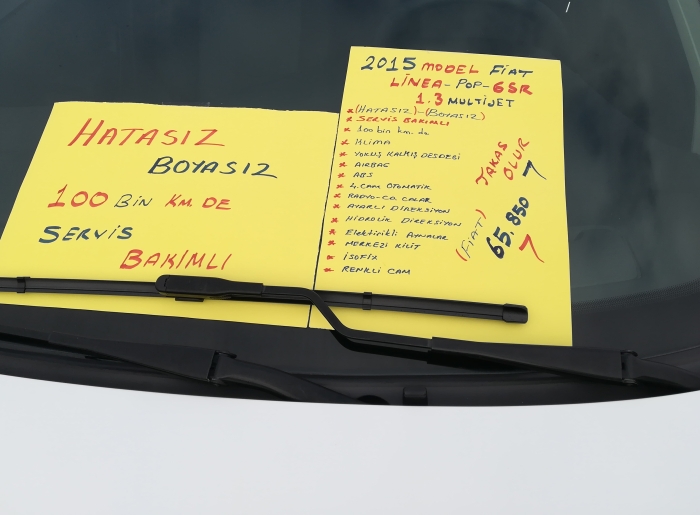 HATASIZ
BOYASIZ
100 BİN KM. DE
SERVİS
BAKIMLI
2015 MODEL FİAT
LİNEA-POP-GSR
1.3 MULTİJET
(HATASIZ)-(BOYASIZ)
* SERVİS BAKIMLI
* 100 bin km. de
* KLİMA
* YOKUŞ KALKIŞ DESDEĞİ
* AİRBAG
* ABS
* 4. CAM OTOMATİK
* RADYO-CD. CALAR
* AYARLI DİREKSİYON
* HİDROLİK DİREKSİYON
* Elektirikli Aynalar
* MERKEZİ KİLİT
* İSOFİX
* RENKLİ CAM
TAKAS
OLUR
(FİAT)
65.850